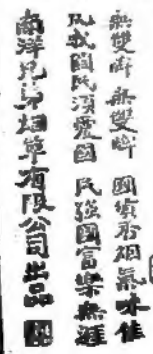 無雙牌 無雙牌 國貨香烟氣味佳
凡我國民須愛國 民強國富樂無涯
南洋兄弟烟草有限公司出品